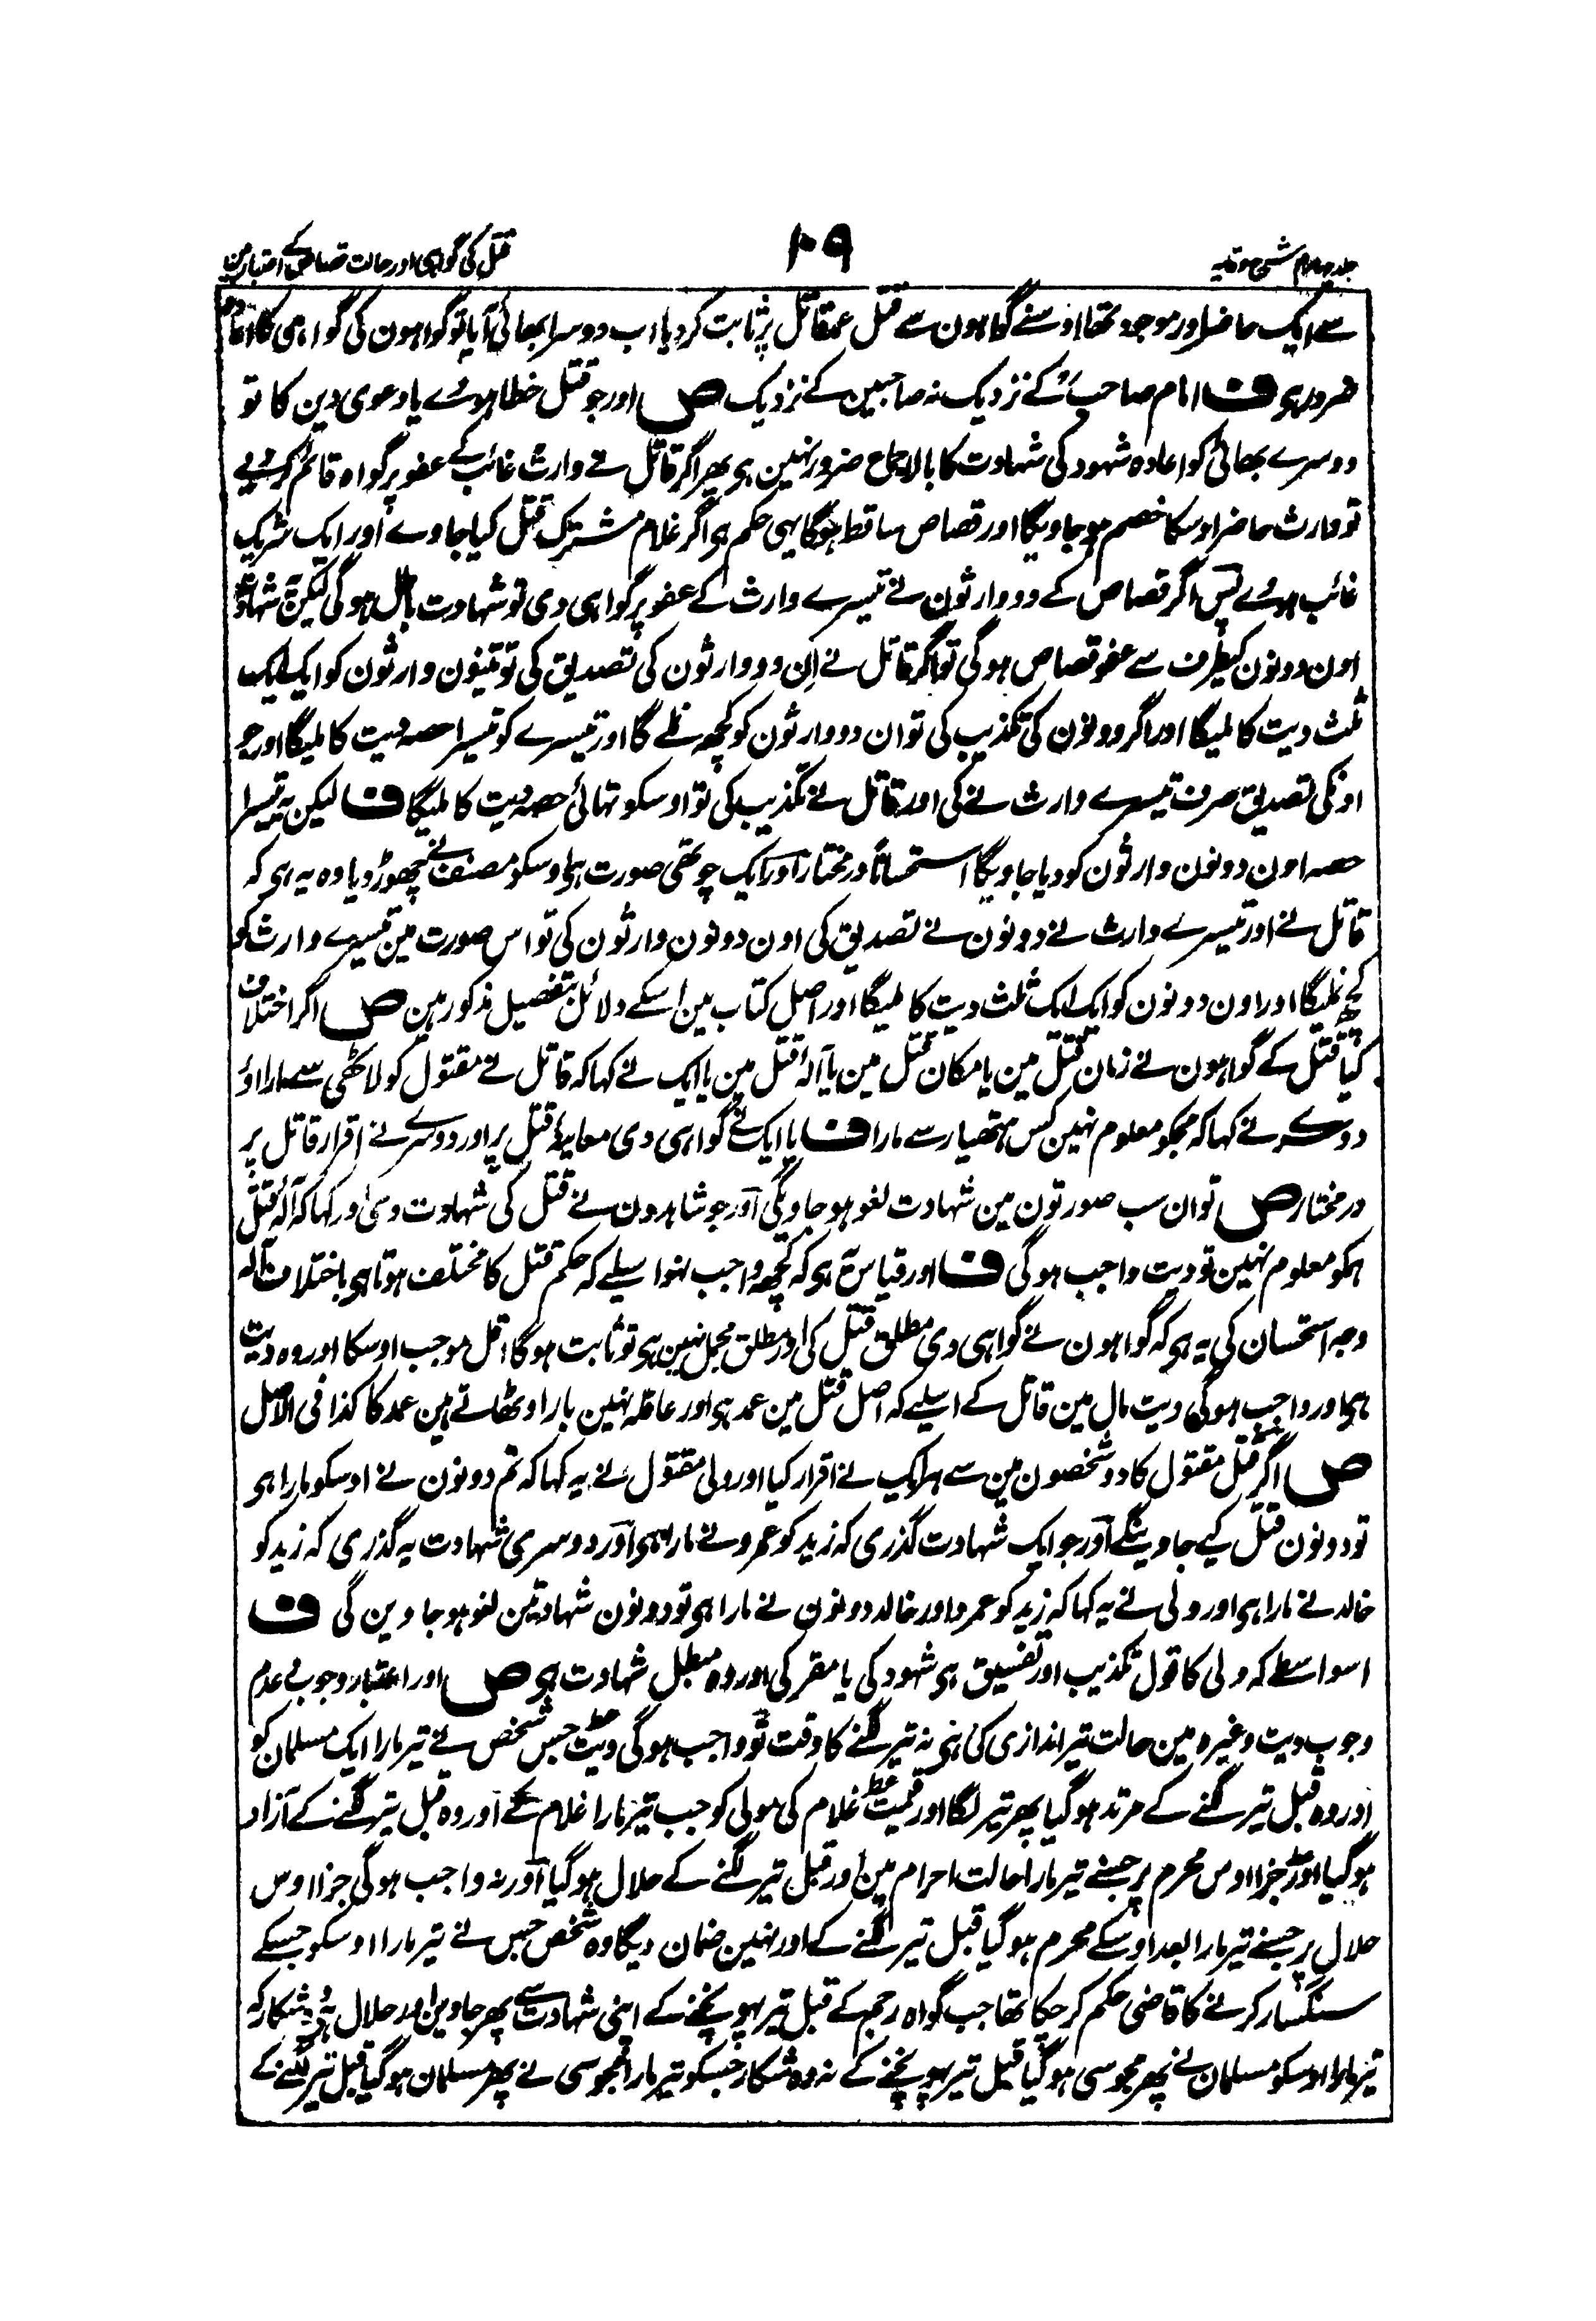 جلد چہارم شرح وقایہ
۱۰۹
قتل کی گواہی اور حالت قصاص کے اعتبار مین
سے ایک حاضر اور موجود تھا اوسنے گواہون سے قتل عمد قاتل پر ثابت کردیا اب دوسرا بھائی آیا تو گواہون کی گواہی کا اعادہ
ضرور ہی ف امام صاحبؒ کے نزدیک نہ صاحبین کے نزدیک ص اور جو قتل خطا ہوئے یا دعوی دین کا تو
دوسرے بھائی کو اعادہ شہود کی شہادت کا بالاجماع ضرور نہین ہی پھر اگر قاتل نے وارث غائب کے عفو پر گواہ قائم کردیے
تو وارث حاضر اوسکا خصم ہوجاویگا اور قصاص ساقط ہوگا یہی حکم ہی اگر غلام مشترک قتل کیا جاوے اور ایک شریک
غائب ہوئے پس اگر قصاص کے دو وارثون نے تیسرے وارث کے عفو پر گواہی دی تو شہادت باطل ہوگی لیکن یہ شہادت
اون دونون کیطرف سے عفو قصاص ہوگی تو اگر قاتل نے اِن دو وارثون کی تصدیق کی تو تینون وارثون کو ایک ایک
ثلث دیت کا ملیگا اور اگر دونون کی تکذیب کی تو ان دو وارثون کو کچھ نملے گا اور تیسرے کو تیسرا حصہ دیت کا ملیگا اور جو
اونکی تصدیق صرف تیسرے وارث نے کی اور قاتل نے تکذیب کی تو اوسکو تہائی حصہ دیت کا ملیگا ف لیکن یہ تیسرا
حصہ اون دونون وارثون کو دیا جاویگا استحساناً درمختار اور ایک چوتھی صورت ہی اوسکو مصنف نے چھوڑ دیا وہ یہ ہی کہ
قاتل نے اور تیسرے وارث نے دونون نے تصدیق کی اون دونون وارثون کی تو اس صورت مین تیسرے وارث کو
کچھ نملیگا اور اون دونون کو ایک ایک ثلث دیت کا ملیگا اور اصل کتاب مین اسکے دلائل بتفصیل مذکور ہین ص اگر اختلاف
کیا قتل کے گواہون نے زمان قتل مین یا مکان قتل مین یا آلۂ قتل مین یا ایک نے کہا کہ قاتل نے مقتول کو لاٹھی سے مارا اور
دوسرے نے کہا کہ مجکو معلوم نہین کس ہتھیار سے مارا ف یا ایک نے گواہی دی معاینۂ قتل پر اور دوسرے نے اقرار قاتل پر
درمختار ص تو ان سب صورتون مین شہادت لغو ہوجاویگی اور جو شاہدون نے قتل کی شہادت دی اور کہا کہ آلۂ قتل
ہمکو معلوم نہین تو دیت واجب ہوگی ف اور قیاس یہ ہی کہ کچھ واجب نہوا سیلے کہ حکم قتل کا مختلف ہوتا ہی باختلاف آلہ
وجہ استحسان کی یہ ہی کہ گواہون نے گواہی دی مطلق قتل کی اور مطلق مجمل نہین ہی تو ثابت ہوگا اقل موجب اوسکا اور وہ دیت
ہی اور واجب ہوگی دیت مال مین قاتل کے اسیلے کہ اصل قتل مین عمد ہی اور عاقلہ نہین بار اوٹھاتے ہین عمد کا کذا فی الاصل
ص اگر قتل مقتول کا دو شخصون مین سے ہر ایک نے اقرار کیا اور ولی مقتول نے یہ کہا کہ تم دونون نے اوسکو مارا ہی
تو دونون قتل کیے جاوینگے اور جو ایک شہادت گذری کہ زید کو عمرو نے مارا ہی اور دوسری شہادت یہ گذری کہ زید کو
خالد نے مارا ہی اور ولی نے یہ کہا کہ زید کو عمرو اور خالد دونون نے مارا ہی تو دونون شہادتین لغو ہوجاوین گی ف
اسواسطے کہ ولی کا قول تکذیب اور تفسیق ہی شہود کی یا مقر کی اور وہ مبطل شہادت ہی ص اور اعتبار وجوب عدم
وجوب دیت وغیرہ مین حالت تیر اندازی کی ہی نہ تیر لگنے کا وقت تو واجب ہوگی دیت جس شخص نے تیر مارا ایک مسلمان کو
اور وہ قبل تیر لگنے کے مرتد ہوگیا پھر تیر لگا اور قیمت غلام کی مولی کو جب تیر مارا غلام کے اور وہ قبل تیر لگنے کے آزاد
ہوگیا اور جزا اوس محرم پر جسنے تیر مارا حالت احرام مین اور قبل تیر لگنے کے حلال ہوگیا اور نہ واجب ہوگی جزا اوس
حلال پر جسنے تیر مارا بعد اوسکے محرم ہوگیا قبل تیر لگنے کے اور نہین ضمان دیگا وہ شخص جس نے تیر مارا اوسکو جسکے
سنگسار کرنے کا قاضی حکم کرچکا تھا جب گواہ رجم کے قبل تیر پہونچنے کے اپنی شہادت سے پھر جاوین اور حلال ہی وہ شکار کہ
تیر مارا اوسکو مسلمان نے پھر مجوسی ہوگیا قبل تیر پہونچنے کے نہ وہ شکار جسکو تیر مارا مجوسی نے پھر مسلمان ہوگیا قبل تیر لگنے کے